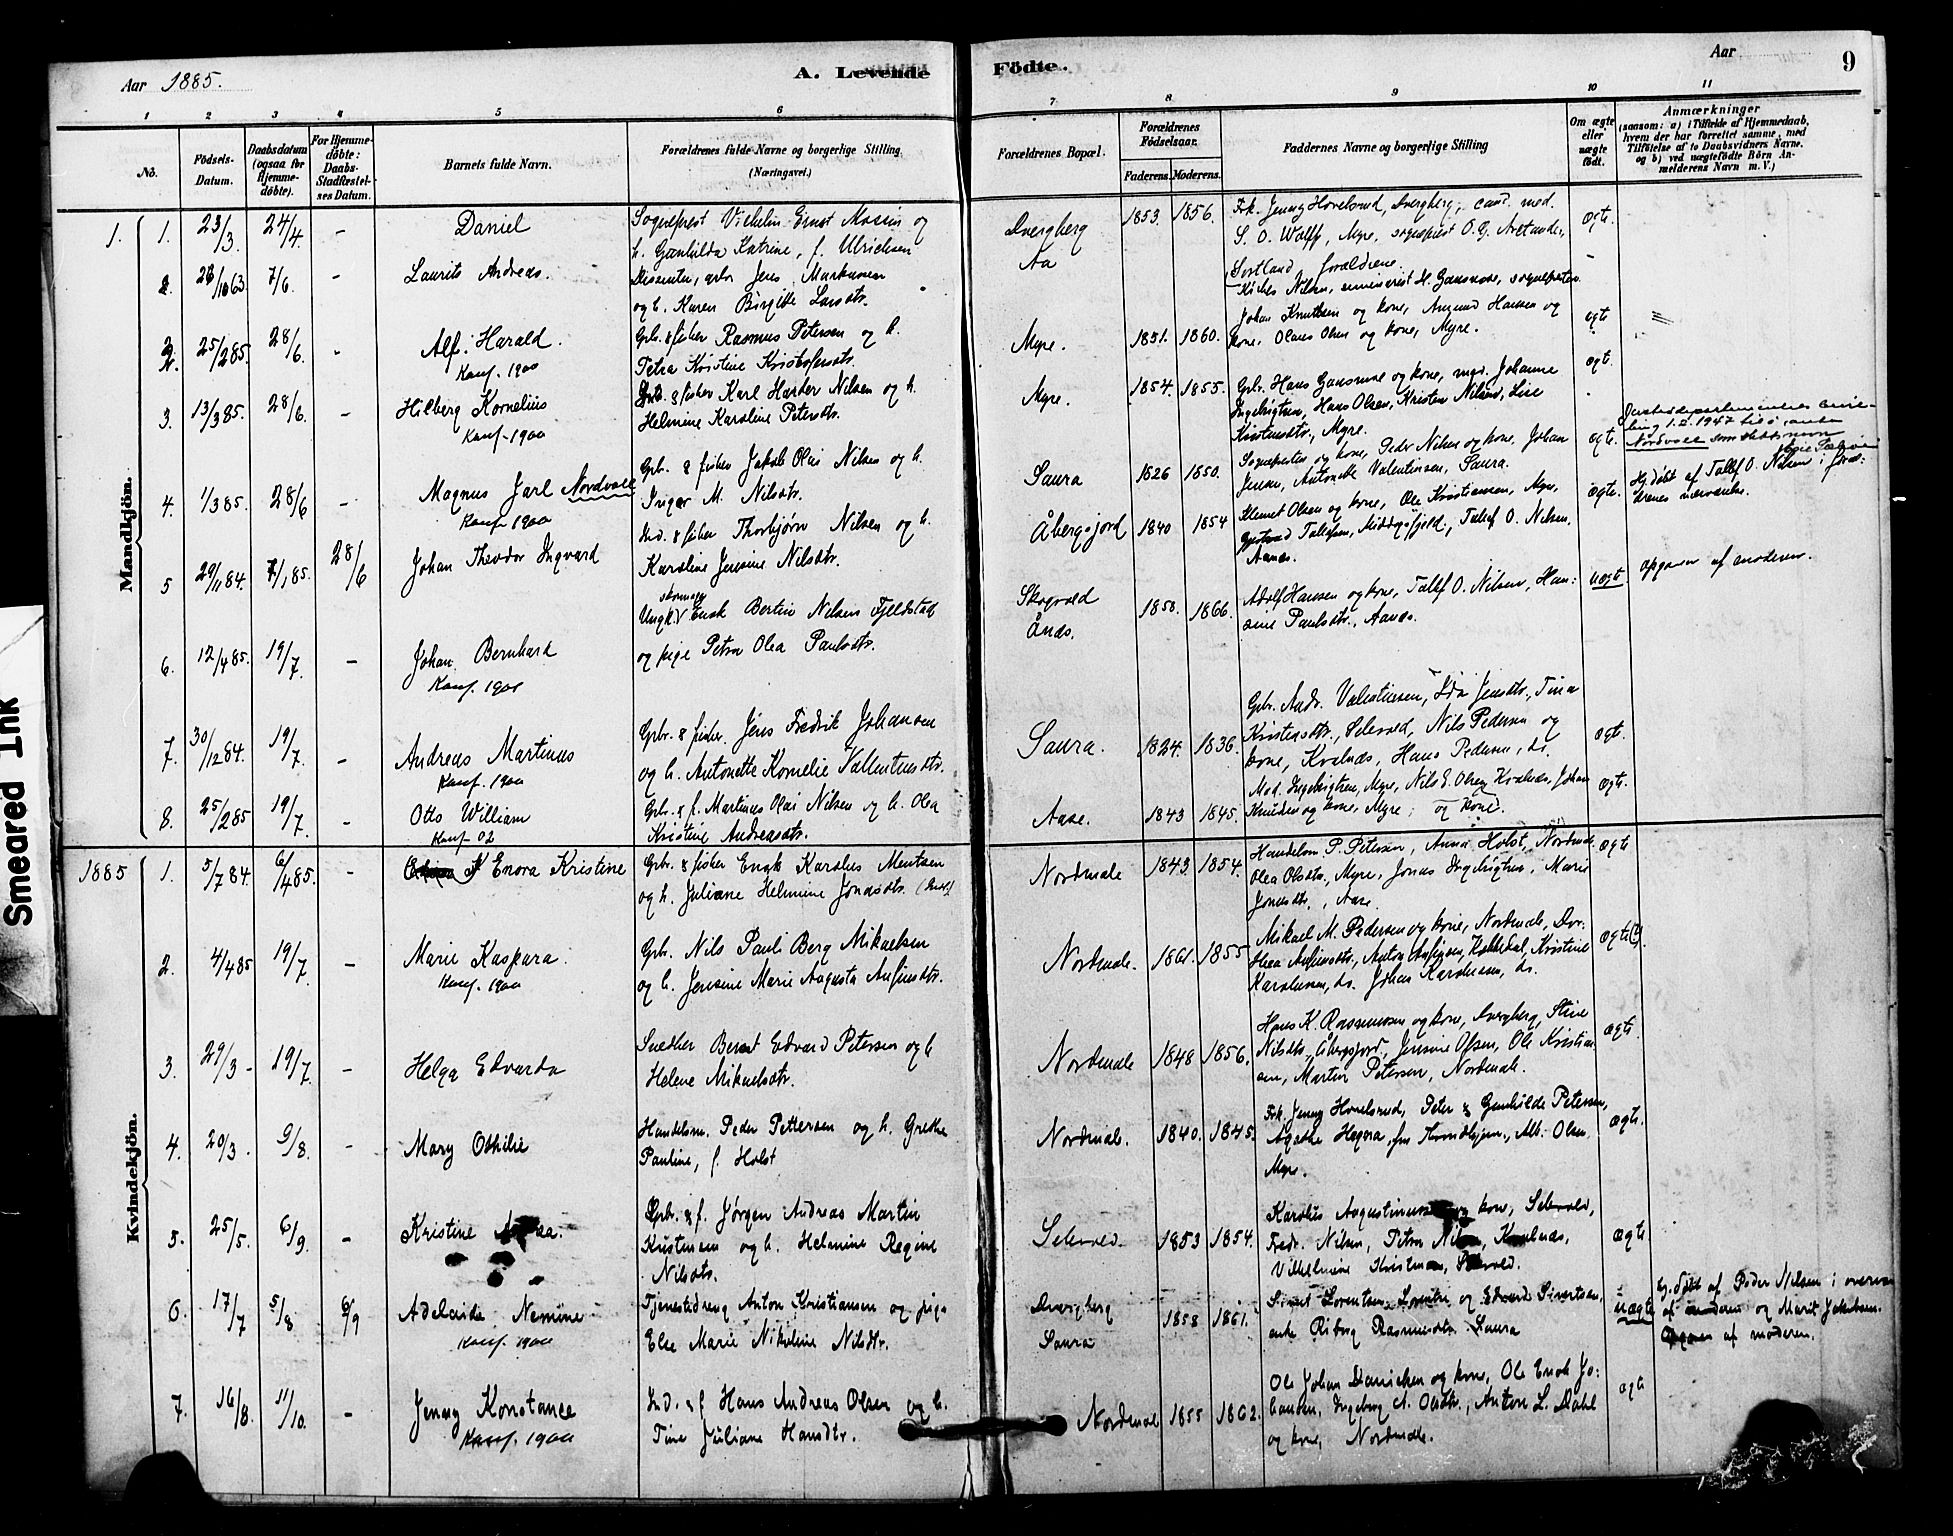 Aar 1885.
A. Levende
Fødte.
Aar
9
1 2 3 4 5 6 7 8 9 10 11
No.
Fødsels-
Datum.
Daabsdatum
(ogsaa for
Hjemme-
døbte).
For Hjemme-
døbte:
Daabs-
Stadfæstel-
ses Datum.
Barnets fulde Navn.
Forældrenes fulde Navne og borgerlige Stilling
(Næringsvei.)
Forældrenes Bopæl.
Forældrenes
Fødselsaar.
Faderens. Moderens.
Faddernes Navne og borgerlige Stilling
Om ægte
eller
uægte
født.
Anmærkninger
(saasom: a) i Tilfælde af Hjemmedaab,
hvem der har forrettet samme, med
Tilføielse af to Daabsvidners Navne.
og b) ved uægtefødte Børn An-
melderens Navn m. V.)
Mandkjön.
1. 1. 23/3. 24/4. - Daniel
Sogneprest Vilhelm Ernst Massin og
h. Gunhilda Katrine, f. Ulrichsen
Dvergberg 1853. 1856.
Frk. Jenny Hovelsrud, Dvergberg, cand. med.
S. O. Wolff, Myre, sogneprest O. G.
Sortland, forældrene
ægte
7/6. - Laurits Andreas.
Dissenter, Jens Markussen
og h. Karen Birgitte Larsdtr.
Aa
Nilsen, H. Gausmose, sognepresten
-
2. 25/285. 28/6. - Alf Harald.
Konf. 1900
Gbr. & fisker Rasmus Petersen og h.
Petra Kristine Kristofersdtr.
Myre. 1851. 1860.
Johan Knutsen og kone, Amund Hansen og
kone, Olaus Olsen og kone, Myre.
ægte
3. 13/385. 28/6. - Hilberg Kornelius
Konf. 1900
Ind. & fisker Karl Harder Nilsen og h.
Helmine Karoline Petersdtr.
Myre. 1854. 1855.
Gbr. Hans Gausmose og kone, Johanne
Ingebrigtsen, Hans Olsen, Kristen Nilsen, Line
Kristensdtr., Myre.
ægt.
4. 1/385. 28/6 - Magnus Jarl Nordvoll
Konf. 1900
Gbr. & fisker Jakob Olai Nilsen og h.
Inger M. Nilsdtr.
Saura 1826 1850.
Sognepresten og kone, Peder Nilsen og kone, Johan
Jensen, Antonette Valentinsen, Saura.
ægt.
1.2.1947 til å anta
Nordvoll som slektsnavn
5 29/1184. 1/185. 28/6 Johan Theodor Ingvard
Ind. & fisker Thorbjørn Nilsen og h.
Karoline Jensine Nilsdtr.
Åbergsjord 1840 1854
Klemet Olsen og kone, Ole Kristiansen, Myre,
Gjertrud Tollefsen, Middagsfjeld, Tollef O. Nilsen,
Aanes.
ægte.
Hj. døbt af Tollef O. Nilsen i foræl-
drenes nærværelse.
6. 12/485. 19/7. - Johan Bernhard
Konf. 1901
Ungk. Enok Bertin Nilsen Fjeldstad
og pige Petra Olea Paulsdtr.
Skogvold
Ånes. 1858. 1866.
Adolf Hansen og kone, Tollef O. Nilsen, Han-
sine Paulsdtr., Aanes.
uægt.
opgaven af moderen.
7. 30/1284. 19/7. - Andreas Martinus
Konf. 1900
Gbr. & fisker Jens Fredrik Johansen
og h. Antonette Kornelie Vallentinsdtr.
Saura. 1824. 1836.
Gbr. Andr. Valentinsen, Ida Jensdtr., Tina
Kristensdtr., Selevold, Nils Pedersen og
kone, Kvalnæs, Hans Pedersen, ds.
ægt.
8. 25/285 19/7. - Otto William
Konf. 02
Gbr. & f. Martinus Olai Nilsen og h. Olea
Kristine Andreasdtr.
Aase. 1843 1845.
Mad. Ingebrigtsen, Myre, Nils E. Olsen, Kvalnæs, Johan
Knudsen og kone, Myre, og kone.
ægt.
Kvindekjön.
1885 1. 5/784. 6/485. - Enora Kristine
Gbr. & fisker Enok Karolius Mentsen
og h. Juliane Helmine Jonasdtr.
Nordmele 1843. 1854.
Handelsm. P. Petersen, Anna Holst, Nordmele
Olea Olsdtr., Myre, Jonas Ingebrigtsen, Marie
Jonasdtr., Aase.
ægte
2. 4/485 19/7. - Marie Kaspara.
Konf. 1900
Gbr. Nils Pauli Berg Mikaelsen
og h. Jensine Marie Augusta Anfinsdtr.
Nordmele. 1861. 1855
Mikael M. Pedersen og kone, Nordmele, Dor-
thea Anfinsdtr., Anton Anfinsen, Kobbedal, Kristine
Karolusen, ds. Johan Karolusen, ds.
ægte(?)
3. 29/3 - 19/7. - Helga Edvarda
Snedker Bernt Edvard Petersen og h
Helene Mikaelsdtr.
Nordmele 1848 1856.
Hans K. Rasmussen og kone, Dvergberg, Stine
Nilsdtr., Åbergsjord, Jensine Olsen, Ole Kristian-
sen, Martin Petersen, Nordmele.
ægte.
4. 20/3. 9/8. - Mary Othilie
Handelsm. Peder Pettersen og h. Grethe
Pauline, f. Holst
Nordmele. 1840. 1845.
Frk. Jenny Hovelsrud, Peter & Gunhilde Petersen,
Agathe Hegera, fra Throndhjem, Alb. Olsen
Myre.
ægt.
5. 25/5. 6/9. - Kristine
Gbr. & f. Jørgen Andreas Martin
Kristensen og h. Helmine Regine
Nilsdtr.
Selevold. 1853 1854.
Karolius Augustinussen og kone, Selevold,
Fredr. Nilsen, Petra Nilsen, Kvalnæs,
Vilhelmine Kristensen, Selevold.
ægte
6. 17/7 5/8 6/9 Adelaide Nemine
Konf. 1900
Tjenestedreng Anton Kristiansen og pige
Else Marie Nikoline Nilsdtr.
Dvergberg
Saura 1858 1861.
Sivert Lorentsen, Lorentse og Edvard Sivertsen,
enke Riborg Rasmusdtr. Saura
uægte
Hj. døbt af Peder Nilsen i overvær
af moderen og Marit Jakobsen.
Opgaven af moderen.
7. 16/8. 11/10. - Jenny Konstance
Konf. 1900
Ind. & f. Hans Andreas Olsen og h.
Tine Juliane Hansdtr.
Nordmele 1855 1862.
Ole Johan Danielsen og kone, Ole Enok Jo-
hansen, Ingeborg A. Olsdtr., Anton L. Dahl
og kone, Nordmele.
ægte
Smeared Ink